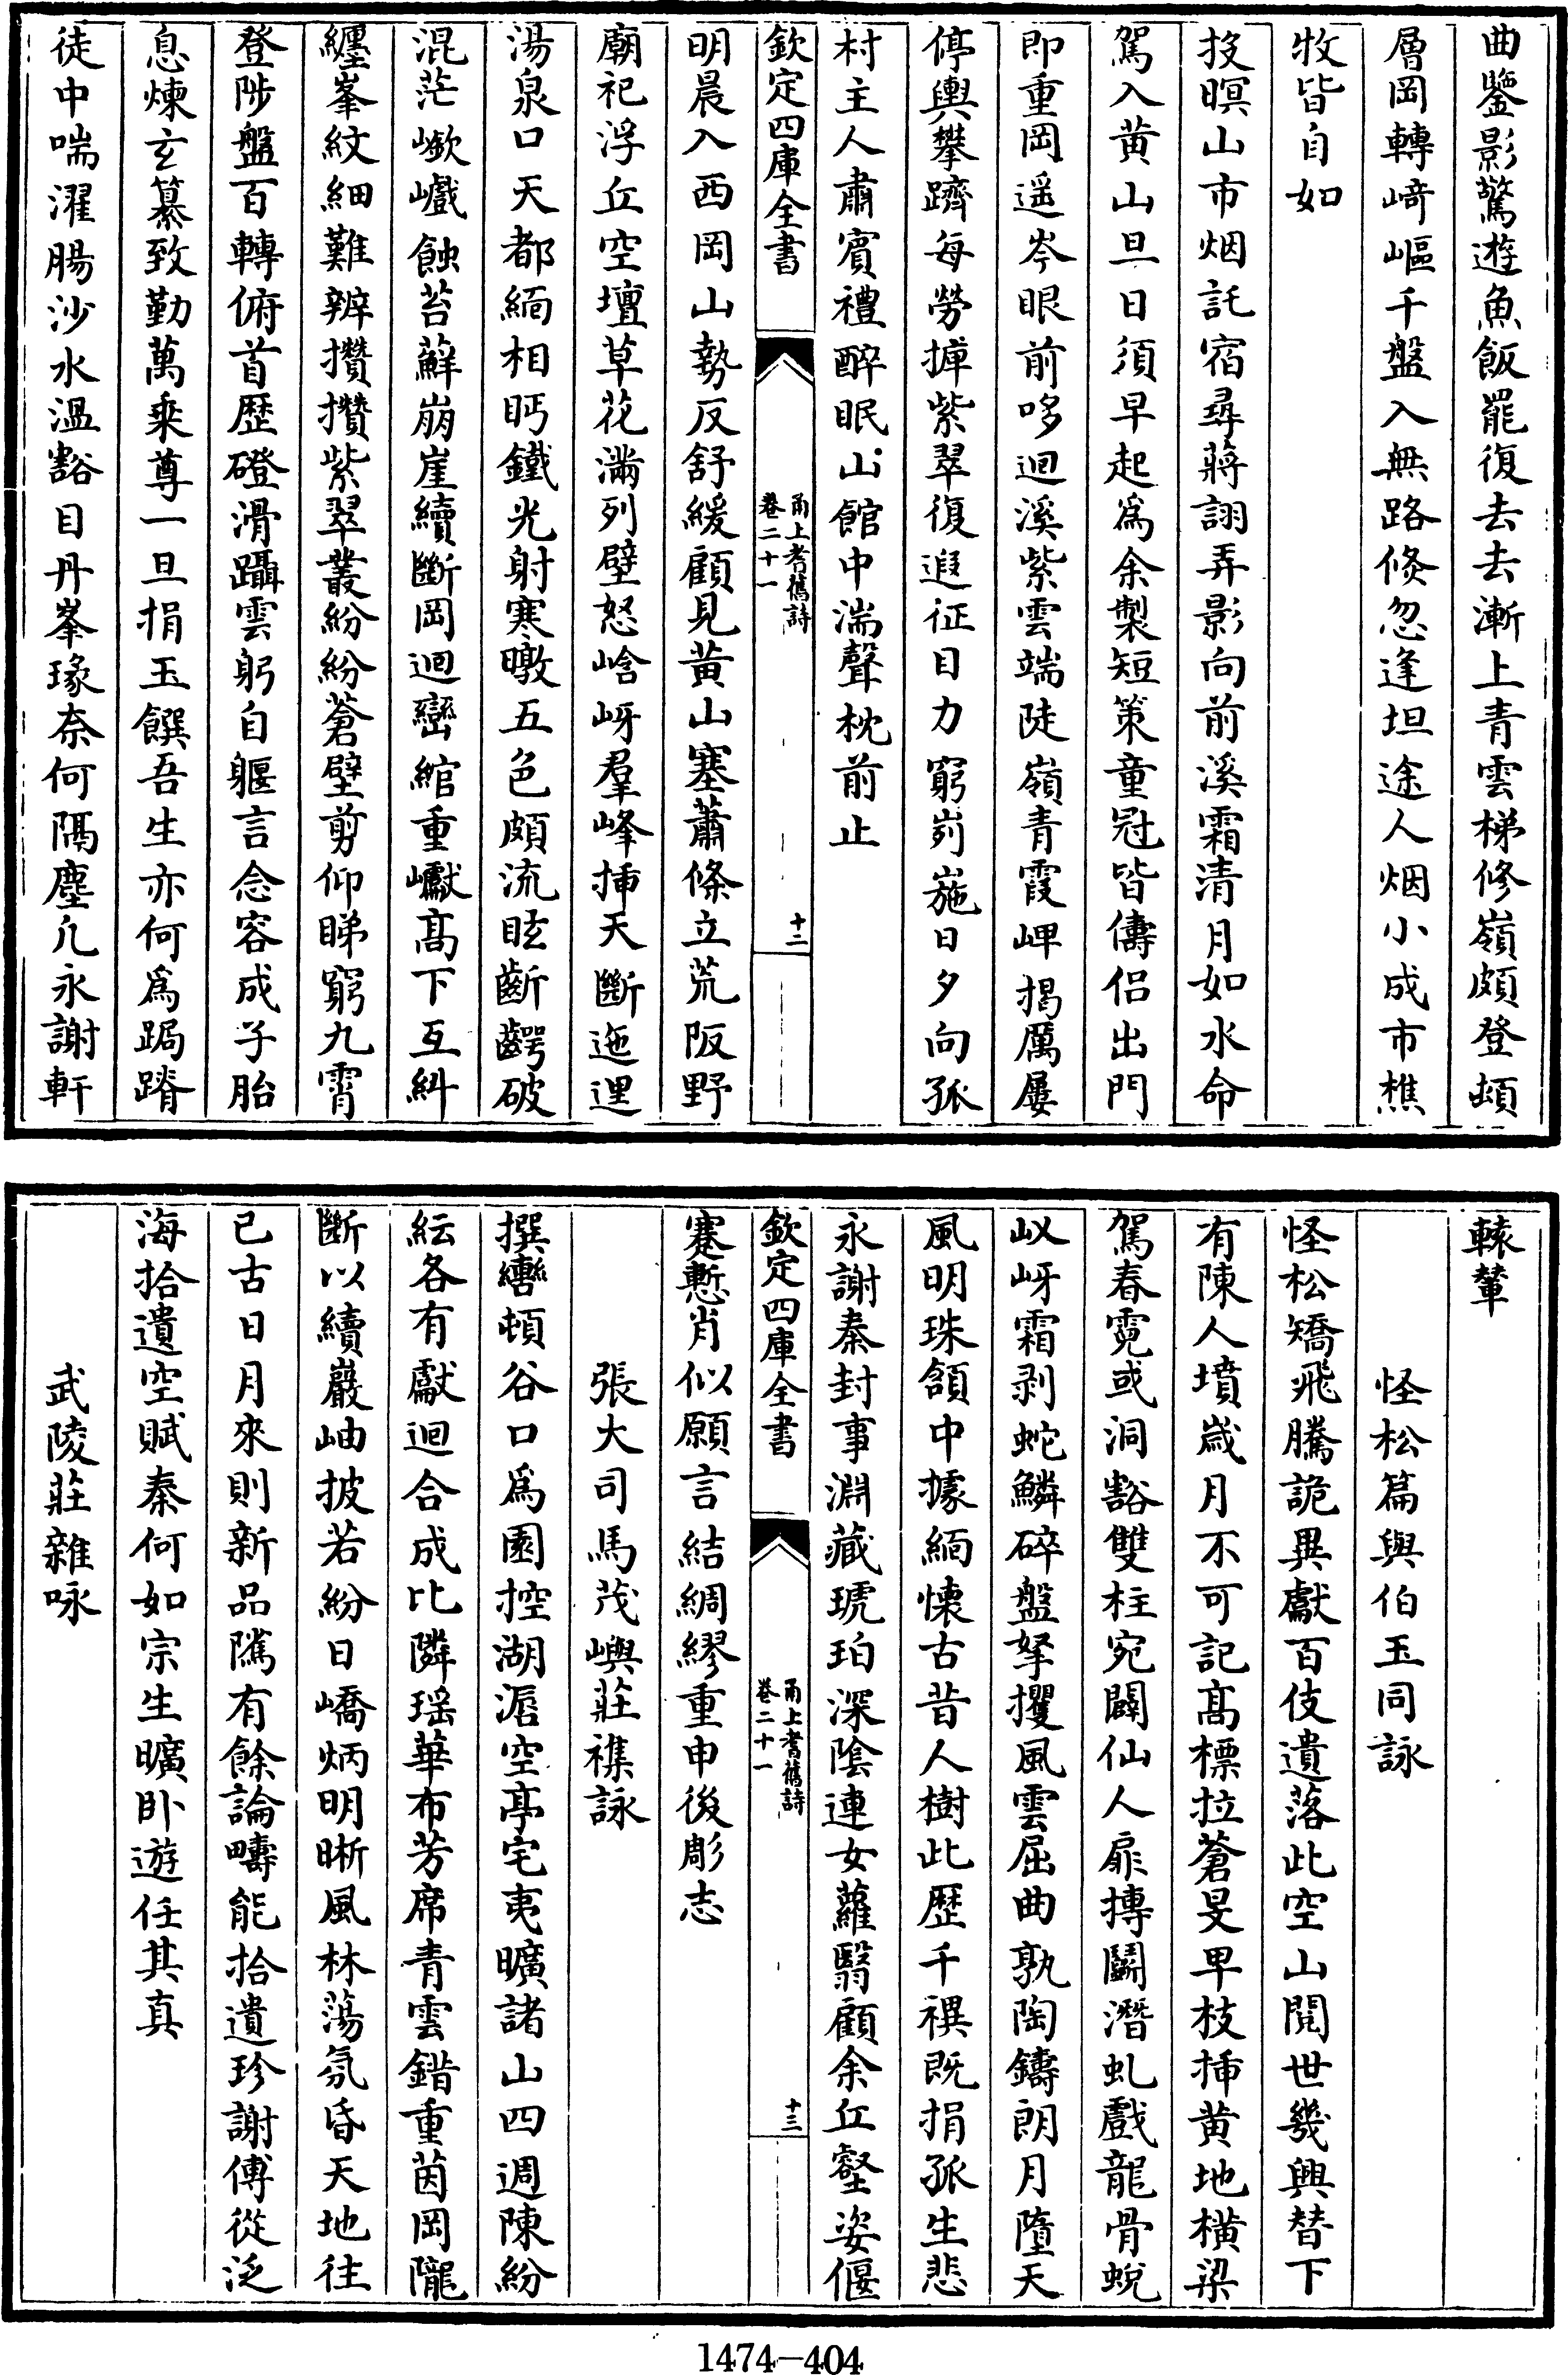 曲鑒影驚遊魚飯罷復去去漸上青雲梯修嶺頗登頓
層岡轉﨑嶇千盤入無路倐忽逢坦途人烟小成市樵
牧皆自如
投暝山市烟託宿尋蔣詡弄影向前溪霜清月如水命
駕入黄山旦日須早起為余製短策童冠皆儔侣出門
即重岡遥岑眼前哆迴溪紫雲端陡嶺青霞岬揭厲屢
停輿攀躋每勞摔紫翠復遐征日力窮峛崺日夕向孤
村主人肅賓禮醉眠山館中湍聲枕前止
欽定四庫全書
甬上耆舊詩
卷二十一
十二
明晨入西岡山勢反舒緩顧見黄山塞蕭條立荒阪野
廟祀浮丘空壇草花滿列壁怒㟏岈羣峰揷天斷迤逦
湯泉口天都緬相眄鐵光射寒暾五色頗流眩齗齶破
混茫嶔巇蝕苔蘚崩崖續斷岡迴巒綰重巘髙下互糾
纒峯紋細難辨攢攢紫翠叢紛紛蒼壁剪仰睇窮九霄
登陟盤百轉俯首歴磴滑躡雲躬自軀言念容成子胎
息煉玄纂致勤萬乘尊一旦捐玉饌吾生亦何為跼蹐
徒中喘濯腸沙水温豁目丹峯瑑奈何隔塵凢永謝軒
轅輦
怪松篇與伯玉同詠
怪松矯飛騰詭異獻百伎遺落此空山閱世幾興替下
有陳人墳歲月不可記髙標拉蒼旻旱枝揷黄地橫梁
駕春霓或洞豁雙柱宛闢仙人扉摶鬭潛虬戲龍骨蛻
㕥岈霜剥蛇鱗碎盤拏攫風雲屈曲孰陶鑄朗月墮天
風明珠頷中據緬懷古昔人樹此歴千禩既捐孤生悲
永謝秦封事淵藏琥珀深陰連女蘿翳顧余丘壑姿偃
欽定四庫全書
甬上耆舊詩
卷二十一
十三
蹇慙肖似願言結綢繆重申後彫志
張大司馬茂嶼莊襍詠
撰轡頓谷口為園控湖漘空亭宅夷曠諸山四週陳紛
紜各有獻迴合成比隣瑶華布芳席青雲錯重茵岡隴
斷以續巖岫披若紛日嶠炳明晰風林蕩氛昏天地往
已古日月來則新品隲有餘論疇能拾遺珍謝傅從泛
海拾遺空賦秦何如宗生曠卧遊任其真
武陵莊雜咏
1474—404